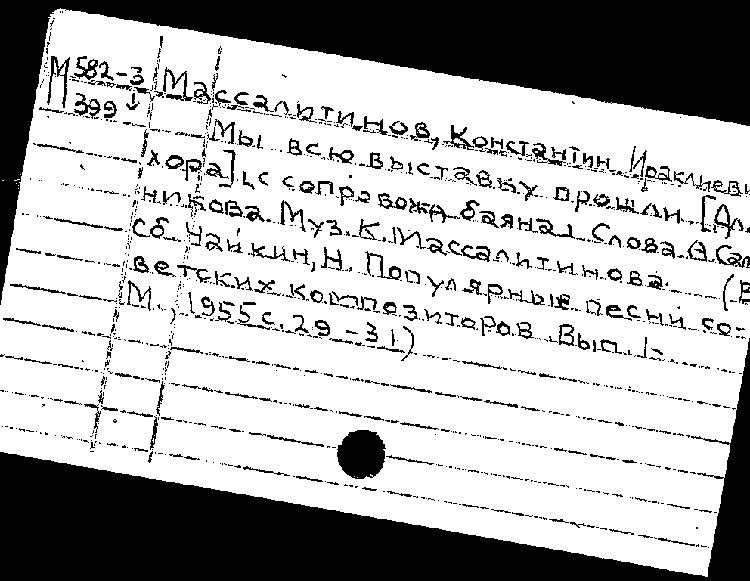 М 582-3
399
Массалитинов, Константин Ираклиеви
Мы всю выставку прошли. [Дл.
хора], с сопровожд. баяна. Слова А. Сал
никова. Муз. К. Массалитинова. (В
сб. Чайкин, Н. Популярные песни со-
ветских композиторов. Вып. 1-
М., 1955 с. 29-31)